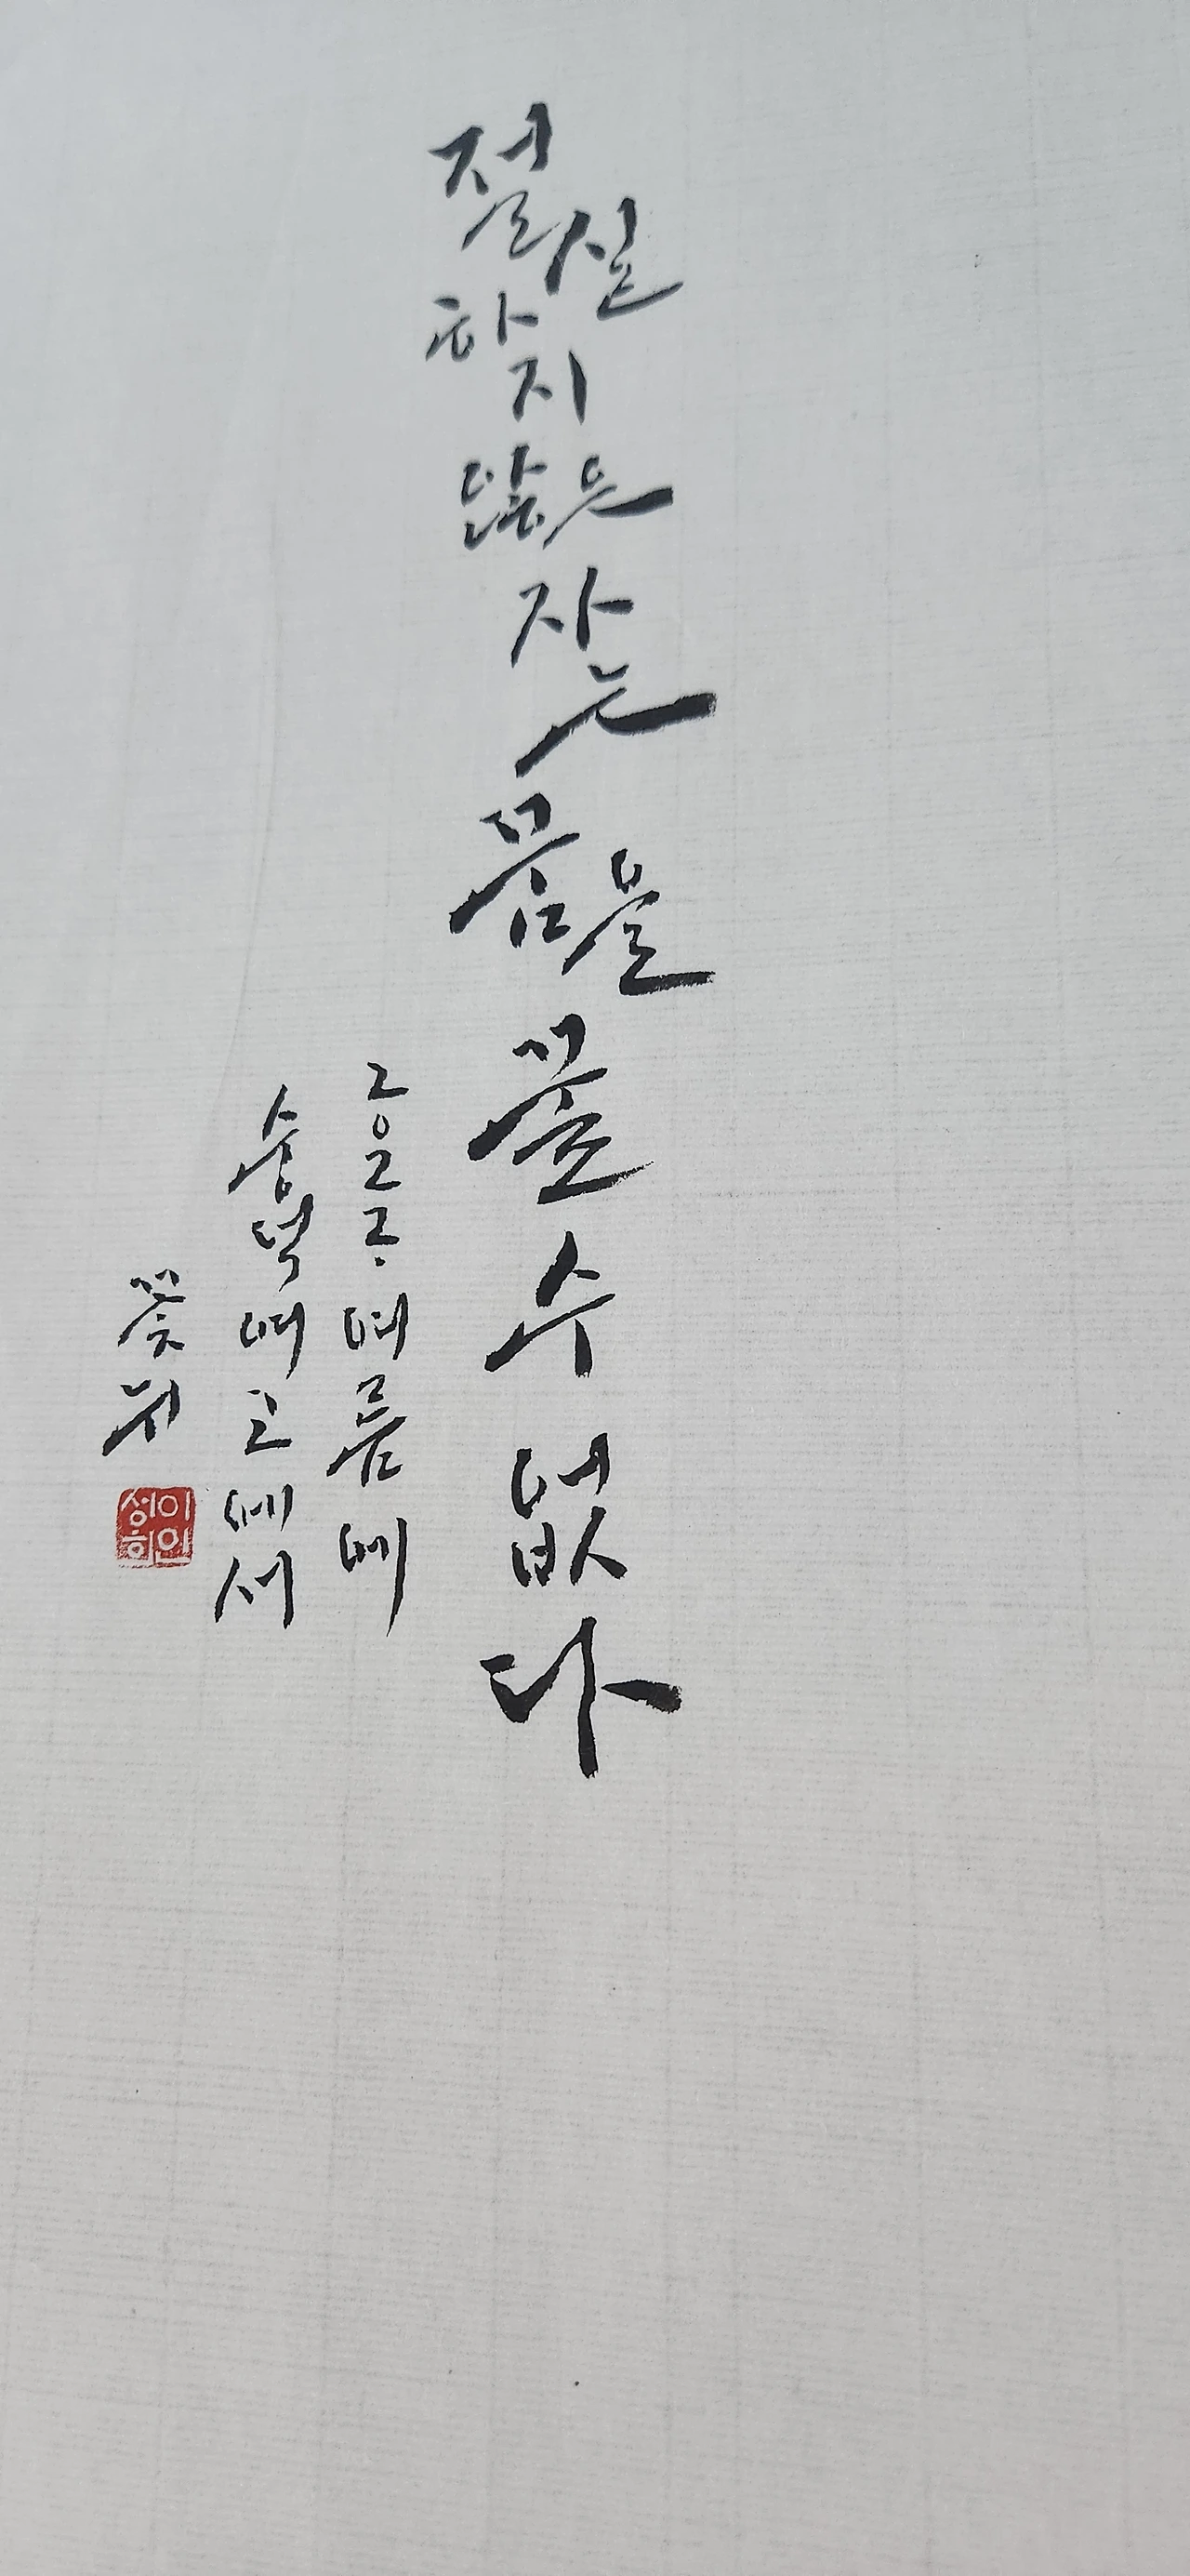 절실하지 않은 자는 꿈을 꿀 수 없다
2022. 여름에
숭덕여고에서
꽃뉘
이인성희